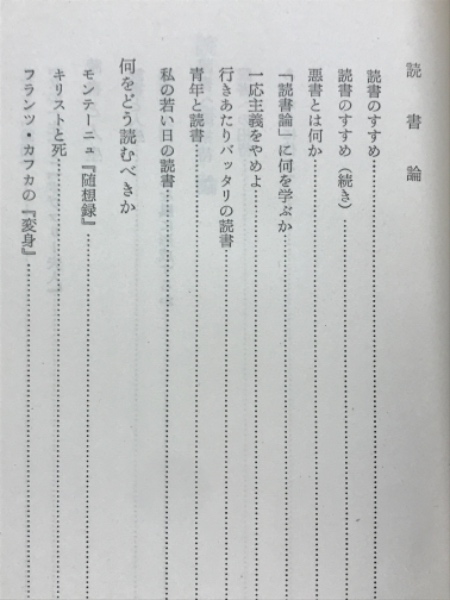 読書論
読書のすすめ
読書のすすめ（続き）
悪書とは何か
「読書論」に何を学ぶか
一応主義をやめよ
行きあたりバッタリの読書
青年と読書
私の若い日の読書
何をどう読むべきか
モンテーニュ『随想録』
キリストと死
フランツ・カフカの『変身』